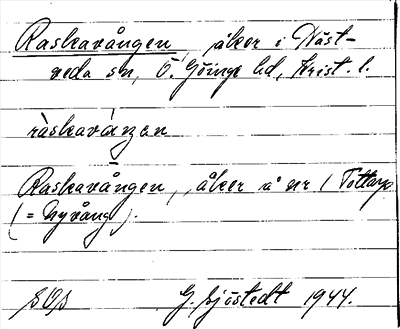 Raskavången, åker i Wäst-
veda sn, Ö. Göinge hd, Krist. l.
ràskavàŋan
Raskavången, åker å nr 1 Tottarp
(= Nyvång).
G. Sjöstedt 1944.